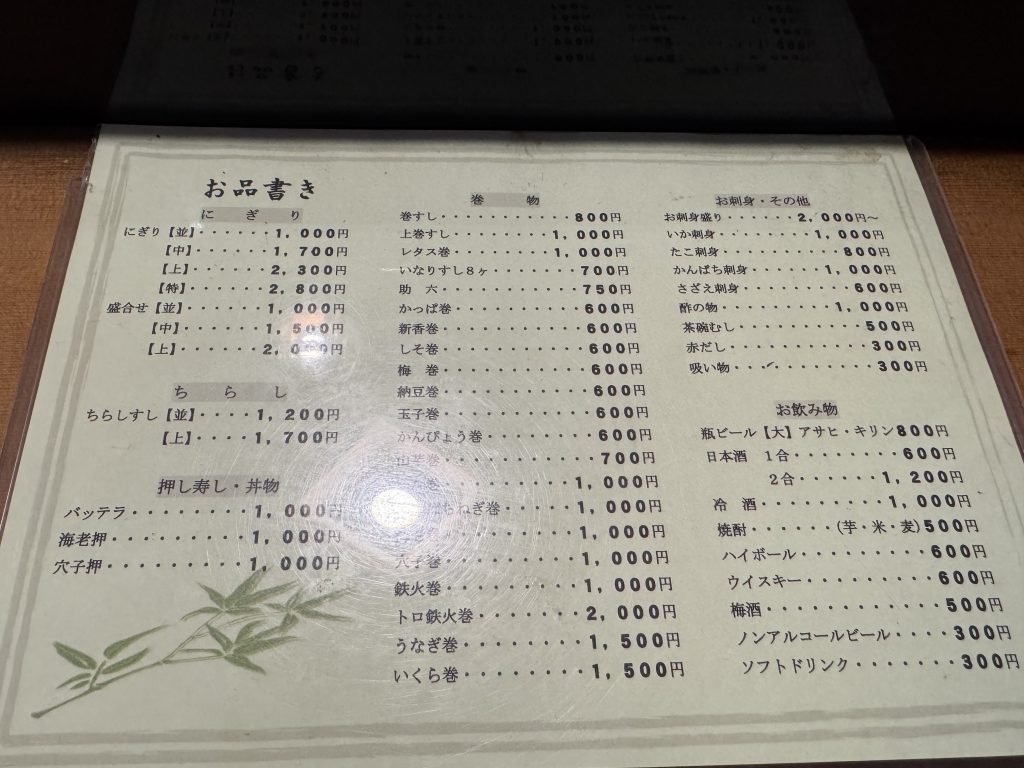 お品書き
にぎり
にぎり【並】・・・・・・1,000円
【中】・・・・・・1,700円
【上】・・・・・・2,300円
【特】・・・・・・2,800円
盛合せ【並】・・・・・・1,000円
【中】・・・・・・1,500円
【上】・・・・・・2,000円
ちらし
ちらしすし【並】・・・・1,200円
【上】・・・・1,700円
押し寿し・丼物
バッテラ・・・・・・・・1,000円
海老押・・・・・・・・・1,000円
穴子押・・・・・・・・・1,000円
巻物
巻すし・・・・・・・・・・800円
上巻すし・・・・・・・・1,000円
レタス巻・・・・・・・・1,000円
いなりすし8ヶ・・・・・・・700円
助六・・・・・・・・・・・750円
かっぱ巻・・・・・・・・・・600円
新香巻・・・・・・・・・・・600円
しそ巻・・・・・・・・・・・600円
梅巻・・・・・・・・・・・600円
納豆巻・・・・・・・・・・・600円
玉子巻・・・・・・・・・・・600円
かんぴょう巻・・・・・・・・600円
山芋巻・・・・・・・・・・・700円
巻・・・・・・・・・1,000円
ねぎ巻・・・・・1,000円
1,000円
穴子巻・・・・・・・・・1,000円
鉄火巻・・・・・・・・・1,000円
トロ鉄火巻・・・・・・・2,000円
うなぎ巻・・・・・・・・1,500円
いくら巻・・・・・・・・1,500円
お刺身・その他
お刺身盛り・・・・・・2,000円～
いか刺身・・・・・・・・1,000円
たこ刺身・・・・・・・・・800円
かんぱち刺身・・・・・・1,000円
さざえ刺身・・・・・・・・600円
酢の物・・・・・・・・・1,000円
茶碗むし・・・・・・・・・500円
赤だし・・・・・・・・・・300円
吸い物・・・・・・・・・・300円
お飲み物
瓶ビール【大】アサヒ・キリン800円
日本酒 1合・・・・・・・・600円
2合・・・・・・1,200円
冷酒・・・・・・・・・1,000円
焼酎・・・・・・(芋・米・麦)500円
ハイボール・・・・・・・・・600円
ウイスキー・・・・・・・・・600円
梅酒・・・・・・・・・・・・500円
ノンアルコールビール・・・・300円
ソフトドリンク・・・・・・・300円